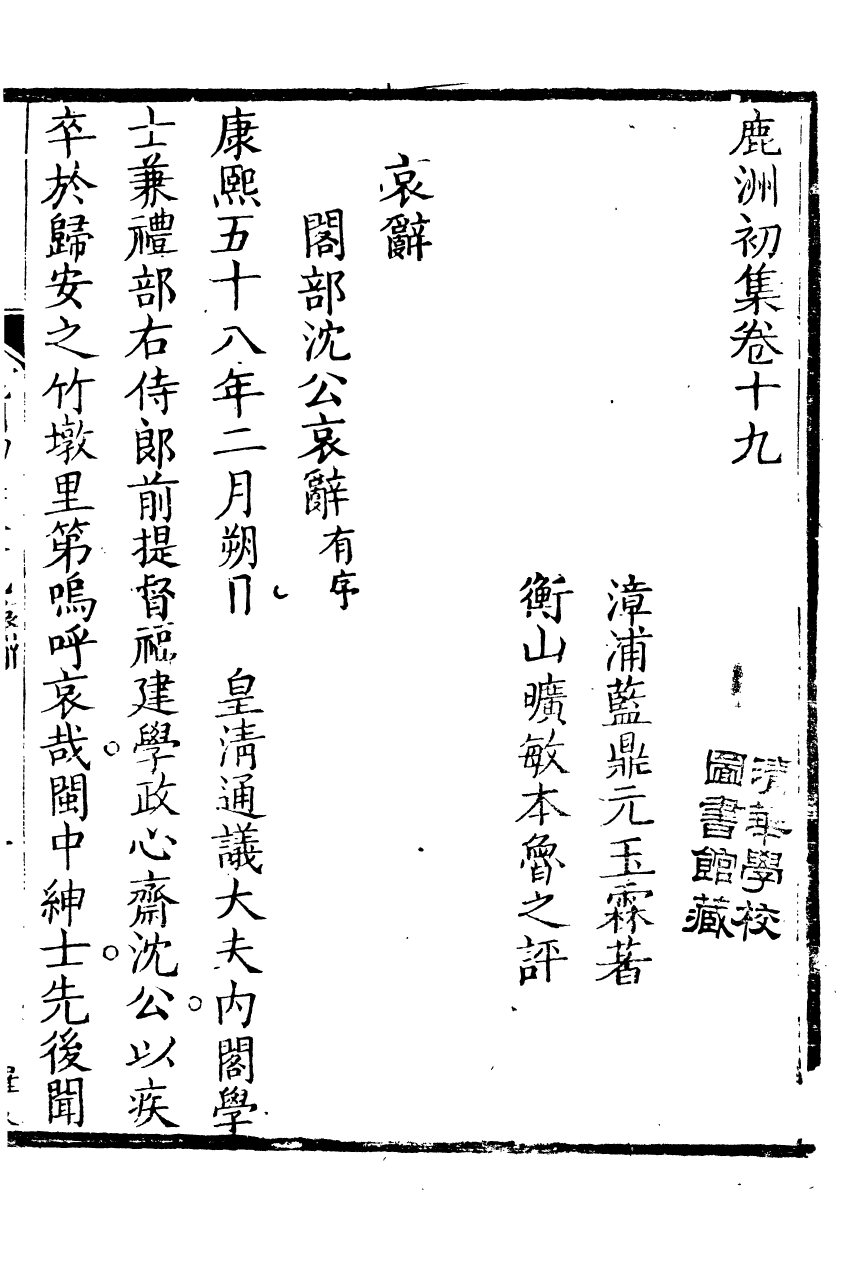 鹿洲初集卷十九
清華學校
圖書館藏
漳浦藍鼎元玉霖著
衡山曠敏本魯之評
哀辭
閣部沈公哀辭有序
康熙五十八年二月朔日　皇清通議大夫內閣學
士兼禮部右侍郎前提督福建學政心齋沈公以疾
卒於歸安之竹墩里第嗚呼哀哉閩中紳士先後聞